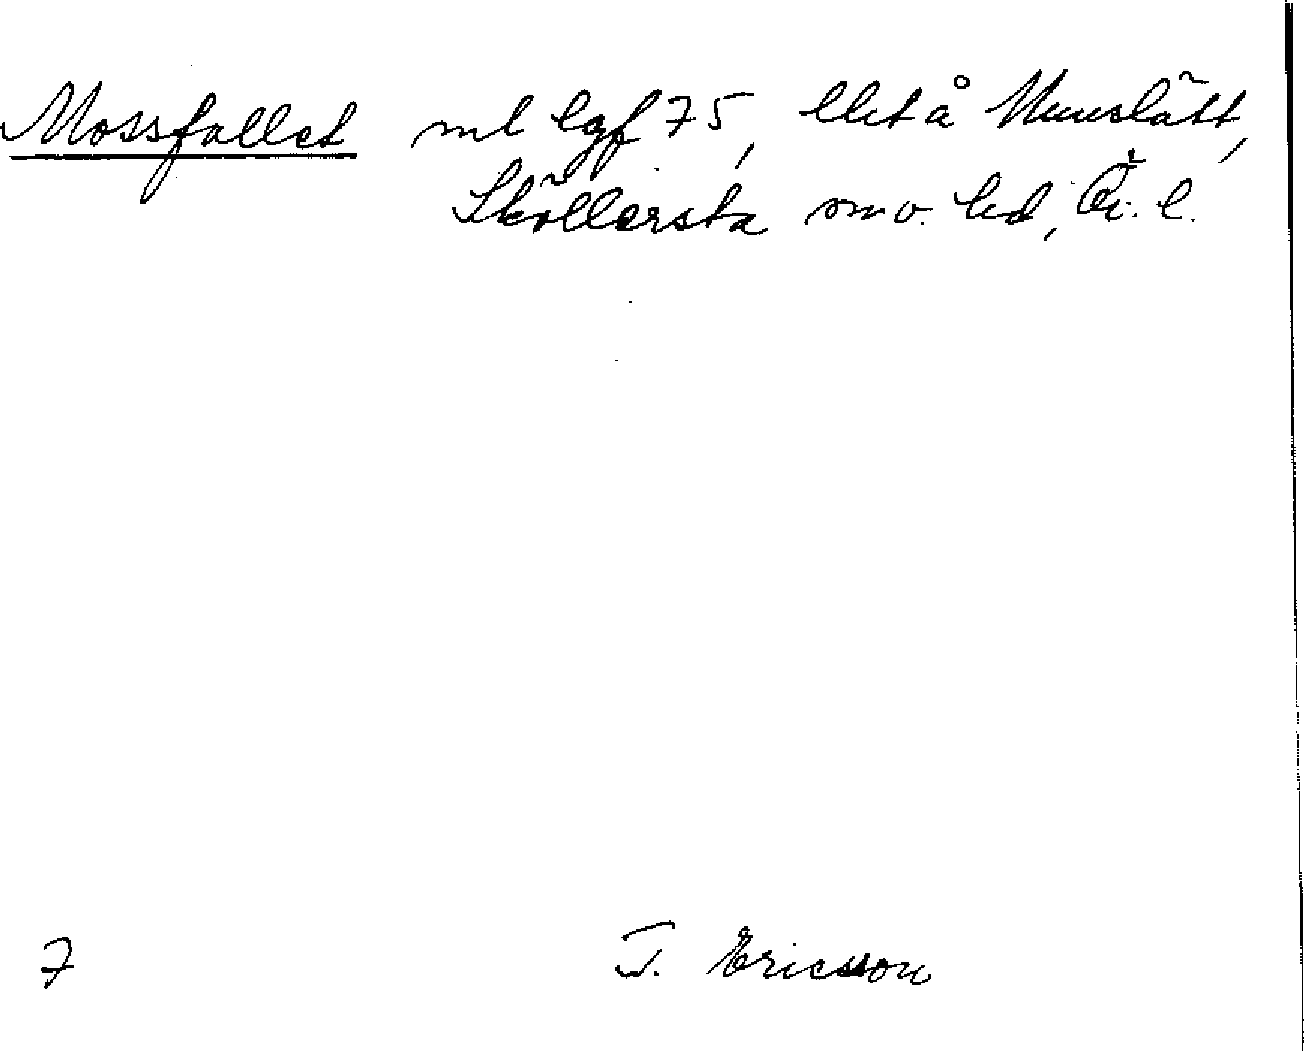 Mossfallet ml lgf 75, llet å Munslätt,
Sköllersta sn o. hd, Ör. l.
7 T. Ericsson